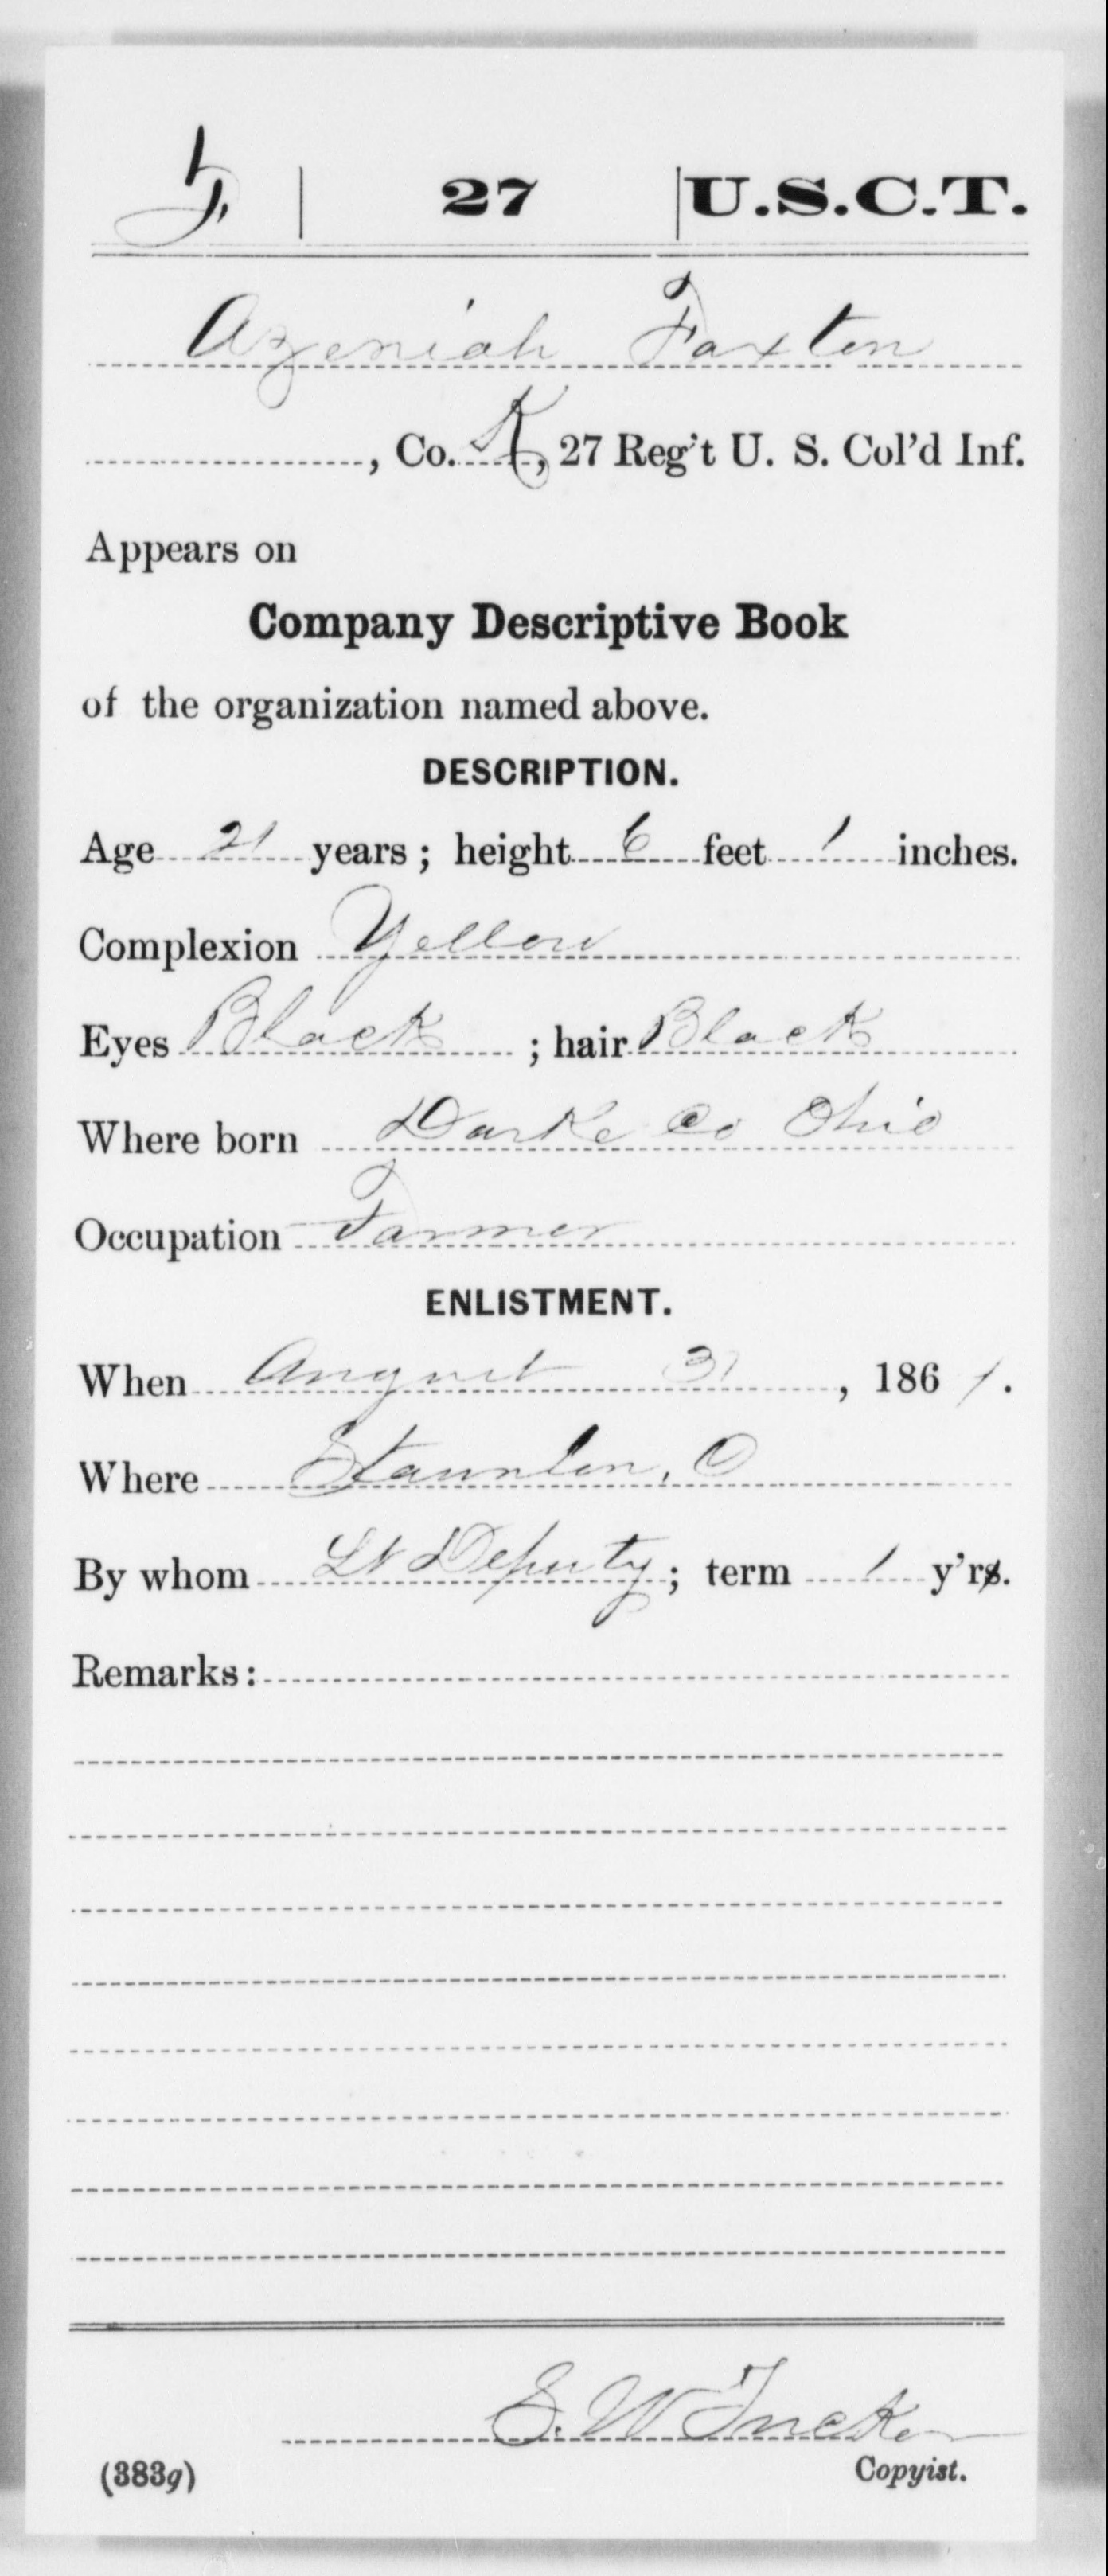 F | 27 | U.S.C.T.
Azeniah Faxton
, Co. K, 27 Reg't U. S. Col'd Inf.
Appears on
Company Descriptive Book
of the organization named above.
DESCRIPTION.
Age 21 years; height 6 feet 1 inches.
Complexion Yellow
Eyes Black ; hair Black
Where born Darke Co Ohio
Occupation Farmer
ENLISTMENT.
When August 31, 186 .
Where Staunton, O
By whom Deputy; term 1 y'rs.
Remarks:
E. W. Tucker
(383g) Copyist.